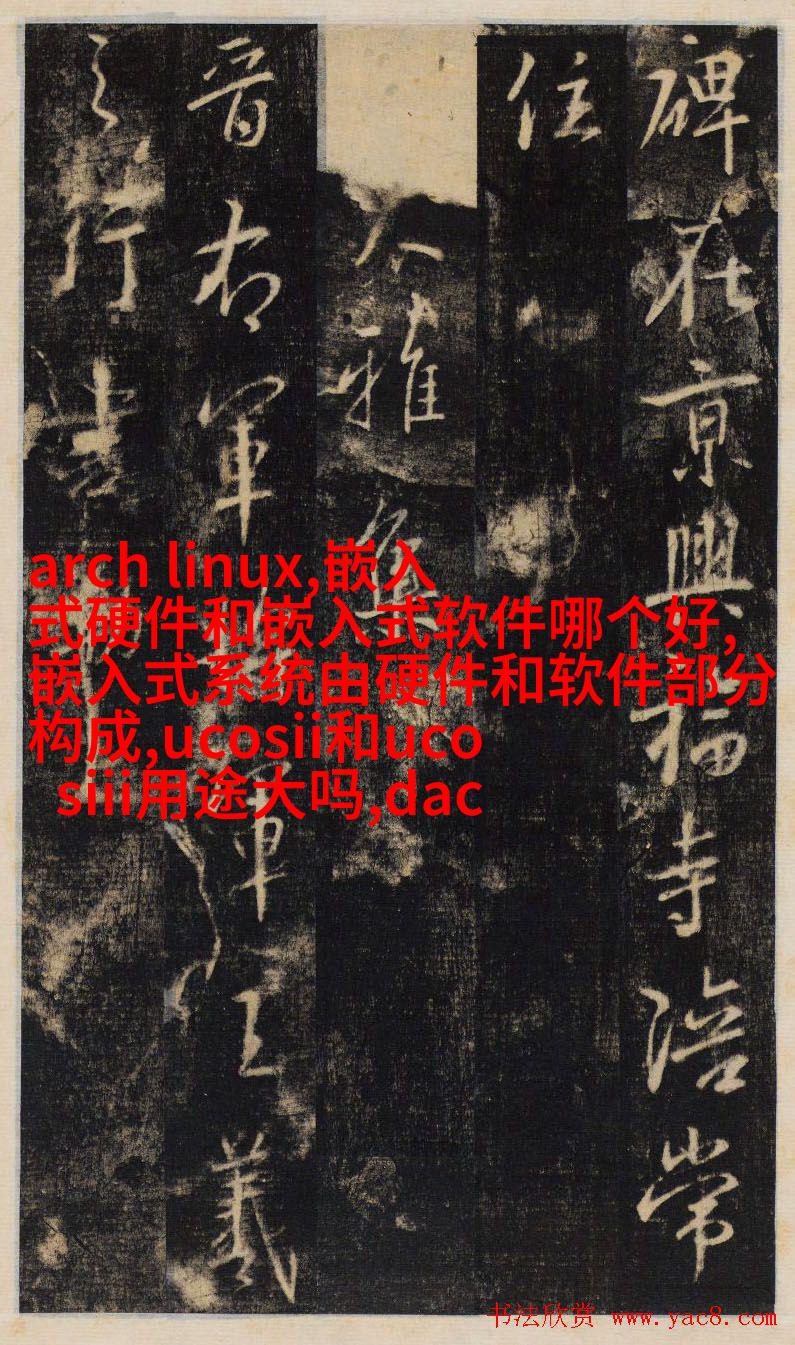 碑在京興福寺陪常
住
大雅集
晉右軍將軍王羲
之行書
arch linux,嵌入
式硬件和嵌入式软件哪个好,
嵌入式系统由硬件和软件部分
构成,ucosii和uco
siii用途大吗,dac
书法欣赏 www.yac8.com